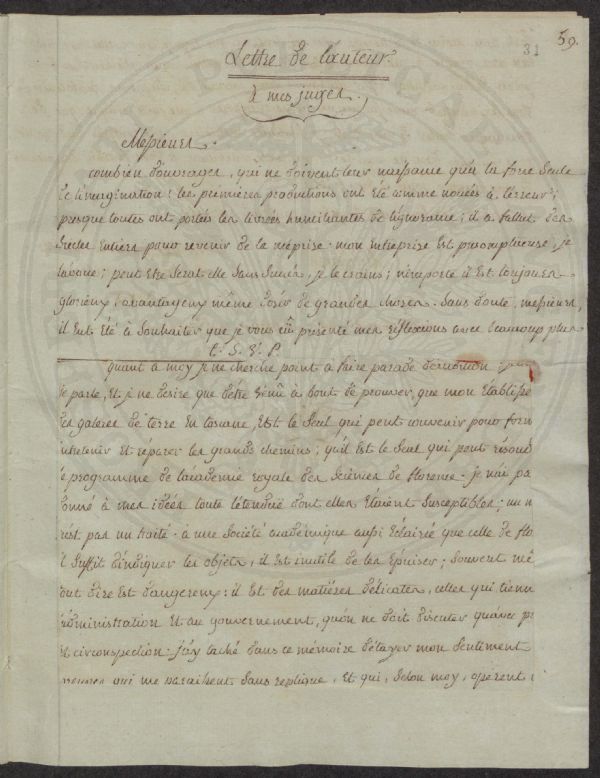 59.
31
Lettre de l'auteur.
à mes juges.
Messieurs.
combien d'ouvrages, qui ne doivent leur naissance qu'à la force seule
de l'imagination! les premières productions ont été comme vouées à l'erreur;
presque toutes ont portés les livrées humiliantes de l'ignorance; il a fallut des
siecles entiers pour revenir de la méprise. mon entreprise est presomptueuse, je
l'avoue; peut etre serat elle sans succès, je le crains; n'importe il est toujours
glorieux, avantageux même d'oser de grandes choses. sans doute, messieurs,
il eut été à souhaiter que je vous eû présenté mes réflexions avec beaucoup plus
t. S. V. P.
quant à moy je ne cherche point à faire parade d'érudition
je parle, et je ne desire que d'etre venû à bout de prouver, que mon Etablisse
des galeres de terre en toscane, est le seul qui peut convenir pour form
entretenir et réparer les grands chemins; qu'il est le seul qui peut résoud
le programme de l'academie royale des sciences de florence. je n'ai pa
donné à mes idées toute l'étendue dont elles étaient susceptibles; un
n'est pas un traité. à une société académique aussi éclairée que celle de flo
il suffit d'indiquer les objets, il est inutile de les épuiser; souvent mê
tout dire est dangereux: il est des matières délicates, celles qui tienn
administration et au gouvernement, qu'on ne doit discuter qu'avec pr
et circonspection. j'ay taché dans ce mémoire d'étayer mon sentiment
preuves qui me paraissent sans replique, et qui, selon moy, opèrent